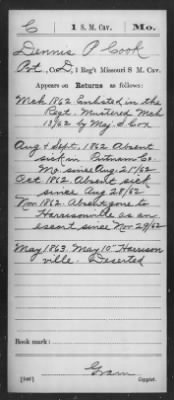 C | 1 S. M. Cav. | Mo.
Dennis P Cook
Pvt., Co. D, 1 Reg't Missouri S M. Cav.
Appears on Returns as follows:
Mch 1862 Enlisted in the
Regt. Mustered Mch
13/62 by Maj. S Cox
Aug & Sept. 1862 Absent
sick in Putnam Co.
Mo. since Aug. 28/62
Oct 1862. Absent sick
since Aug 28/62
Nov 1862. Absent gone to
Harrisonville as an
escort since Nov 29/62
May 1863. May 10" Harrison
ville. Deserted
Book mark:
Gram
(546) Copyist.